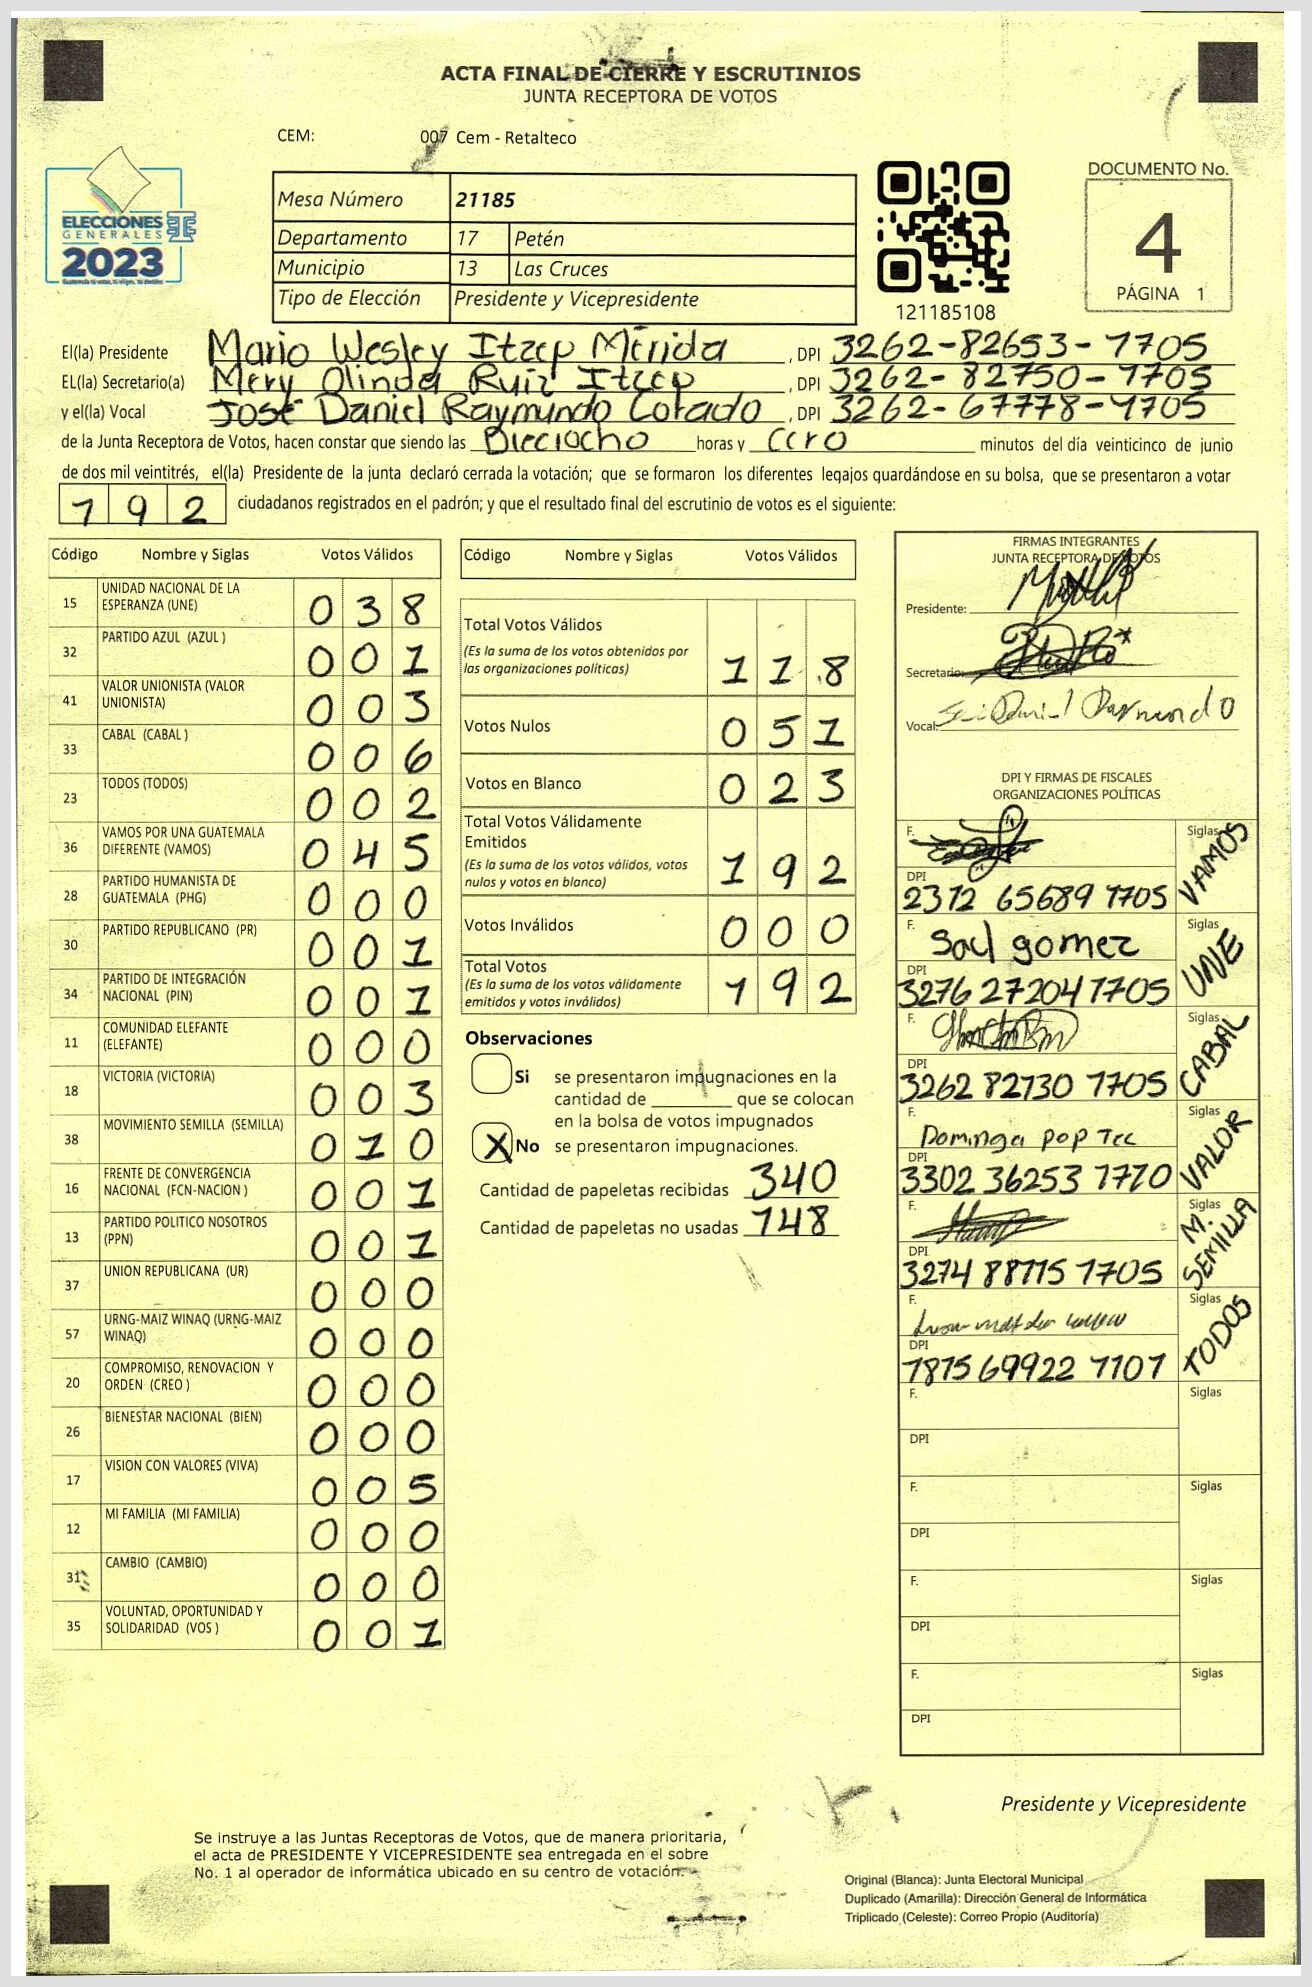 ACTA FINAL DE CIERRE Y ESCRUTINIOS
JUNTA RECEPTORA DE VOTOS
CEM: 007 Cem - Retalteco
ELECCIONES
GENERALES
2023
Mesa Número 21185
Departamento 17 Petén
Municipio 13 Las Cruces
Tipo de Elección Presidente y Vicepresidente
121185108
DOCUMENTO No.
4
PÁGINA 1
El(la) Presidente Mario Wesley Itzep Mérida, DPI 3262-82653-1705
EL(la) Secretario(a) Mery Olinda Ruiz Itzep, DPI 3262-82750-1705
y el(la) Vocal José Daniel Raymundo Corado, DPI 3262-67778-1705
de la Junta Receptora de Votos, hacen constar que siendo las Dieciocho horas y cero minutos del día veinticinco de junio
de dos mil veintitrés, el(la) Presidente de la junta declaró cerrada la votación; que se formaron los diferentes legajos quardándose en su bolsa, que se presentaron a votar
192 ciudadanos registrados en el padrón; y que el resultado final del escrutinio de votos es el siguiente:
Código Nombre y Siglas Votos Válidos
15 UNIDAD NACIONAL DE LA ESPERANZA (UNE) 038
32 PARTIDO AZUL (AZUL ) 001
41 VALOR UNIONISTA (VALOR UNIONISTA) 003
33 CABAL (CABAL ) 006
23 TODOS (TODOS) 002
36 VAMOS POR UNA GUATEMALA DIFERENTE (VAMOS) 045
28 PARTIDO HUMANISTA DE GUATEMALA (PHG) 000
30 PARTIDO REPUBLICANO (PR) 001
34 PARTIDO DE INTEGRACIÓN NACIONAL (PIN) 001
11 COMUNIDAD ELEFANTE (ELEFANTE) 000
18 VICTORIA (VICTORIA) 003
38 MOVIMIENTO SEMILLA (SEMILLA) 010
16 FRENTE DE CONVERGENCIA NACIONAL (FCN-NACION ) 001
13 PARTIDO POLITICO NOSOTROS (PPN) 001
37 UNION REPUBLICANA (UR) 000
57 URNG-MAIZ WINAQ (URNG-MAIZ WINAQ) 000
20 COMPROMISO, RENOVACION Y ORDEN (CREO ) 000
26 BIENESTAR NACIONAL (BIEN) 000
17 VISION CON VALORES (VIVA) 005
12 MI FAMILIA (MI FAMILIA) 000
31 CAMBIO (CAMBIO) 000
35 VOLUNTAD, OPORTUNIDAD Y SOLIDARIDAD (VOS ) 001
Código Nombre y Siglas Votos Válidos
Total Votos Válidos
(Es la suma de los votos obtenidos por las organizaciones políticas) 118
Votos Nulos 051
Votos en Blanco 023
Total Votos Válidamente Emitidos
(Es la suma de los votos válidos, votos nulos y votos en blanco) 192
Votos Inválidos 000
Total Votos
(Es la suma de los votos válidamente emitidos y votos inválidos) 192
Observaciones
Si se presentaron impugnaciones en la
cantidad de ________ que se colocan
en la bolsa de votos impugnados
X No se presentaron impugnaciones.
Cantidad de papeletas recibidas 340
Cantidad de papeletas no usadas 148
FIRMAS INTEGRANTES
JUNTA RECEPTORA DE VOTOS
Presidente:
Secretario:
Vocal: Daniel Raymundo
DPI Y FIRMAS DE FISCALES
ORGANIZACIONES POLÍTICAS
F. Siglas VAMOS
DPI 2372 65689 1705
F. Saul gomez Siglas UNE
DPI 3276 27204 1705
F. Siglas CABAL
DPI 3262 82730 1705
F. Dominga Pop Tec Siglas VALOR
DPI 3302 36253 1710
F. Siglas M. SEMILLA
DPI 3274 88775 1705
F. Siglas TODOS
DPI 1875 69922 1107
F. Siglas
DPI
F. Siglas
DPI
F. Siglas
DPI
F. Siglas
DPI
Presidente y Vicepresidente
Se instruye a las Juntas Receptoras de Votos, que de manera prioritaria,
el acta de PRESIDENTE Y VICEPRESIDENTE sea entregada en el sobre
No. 1 al operador de informática ubicado en su centro de votación.
Original (Blanca): Junta Electoral Municipal
Duplicado (Amarilla): Dirección General de Informática
Triplicado (Celeste): Correo Propio (Auditoría)